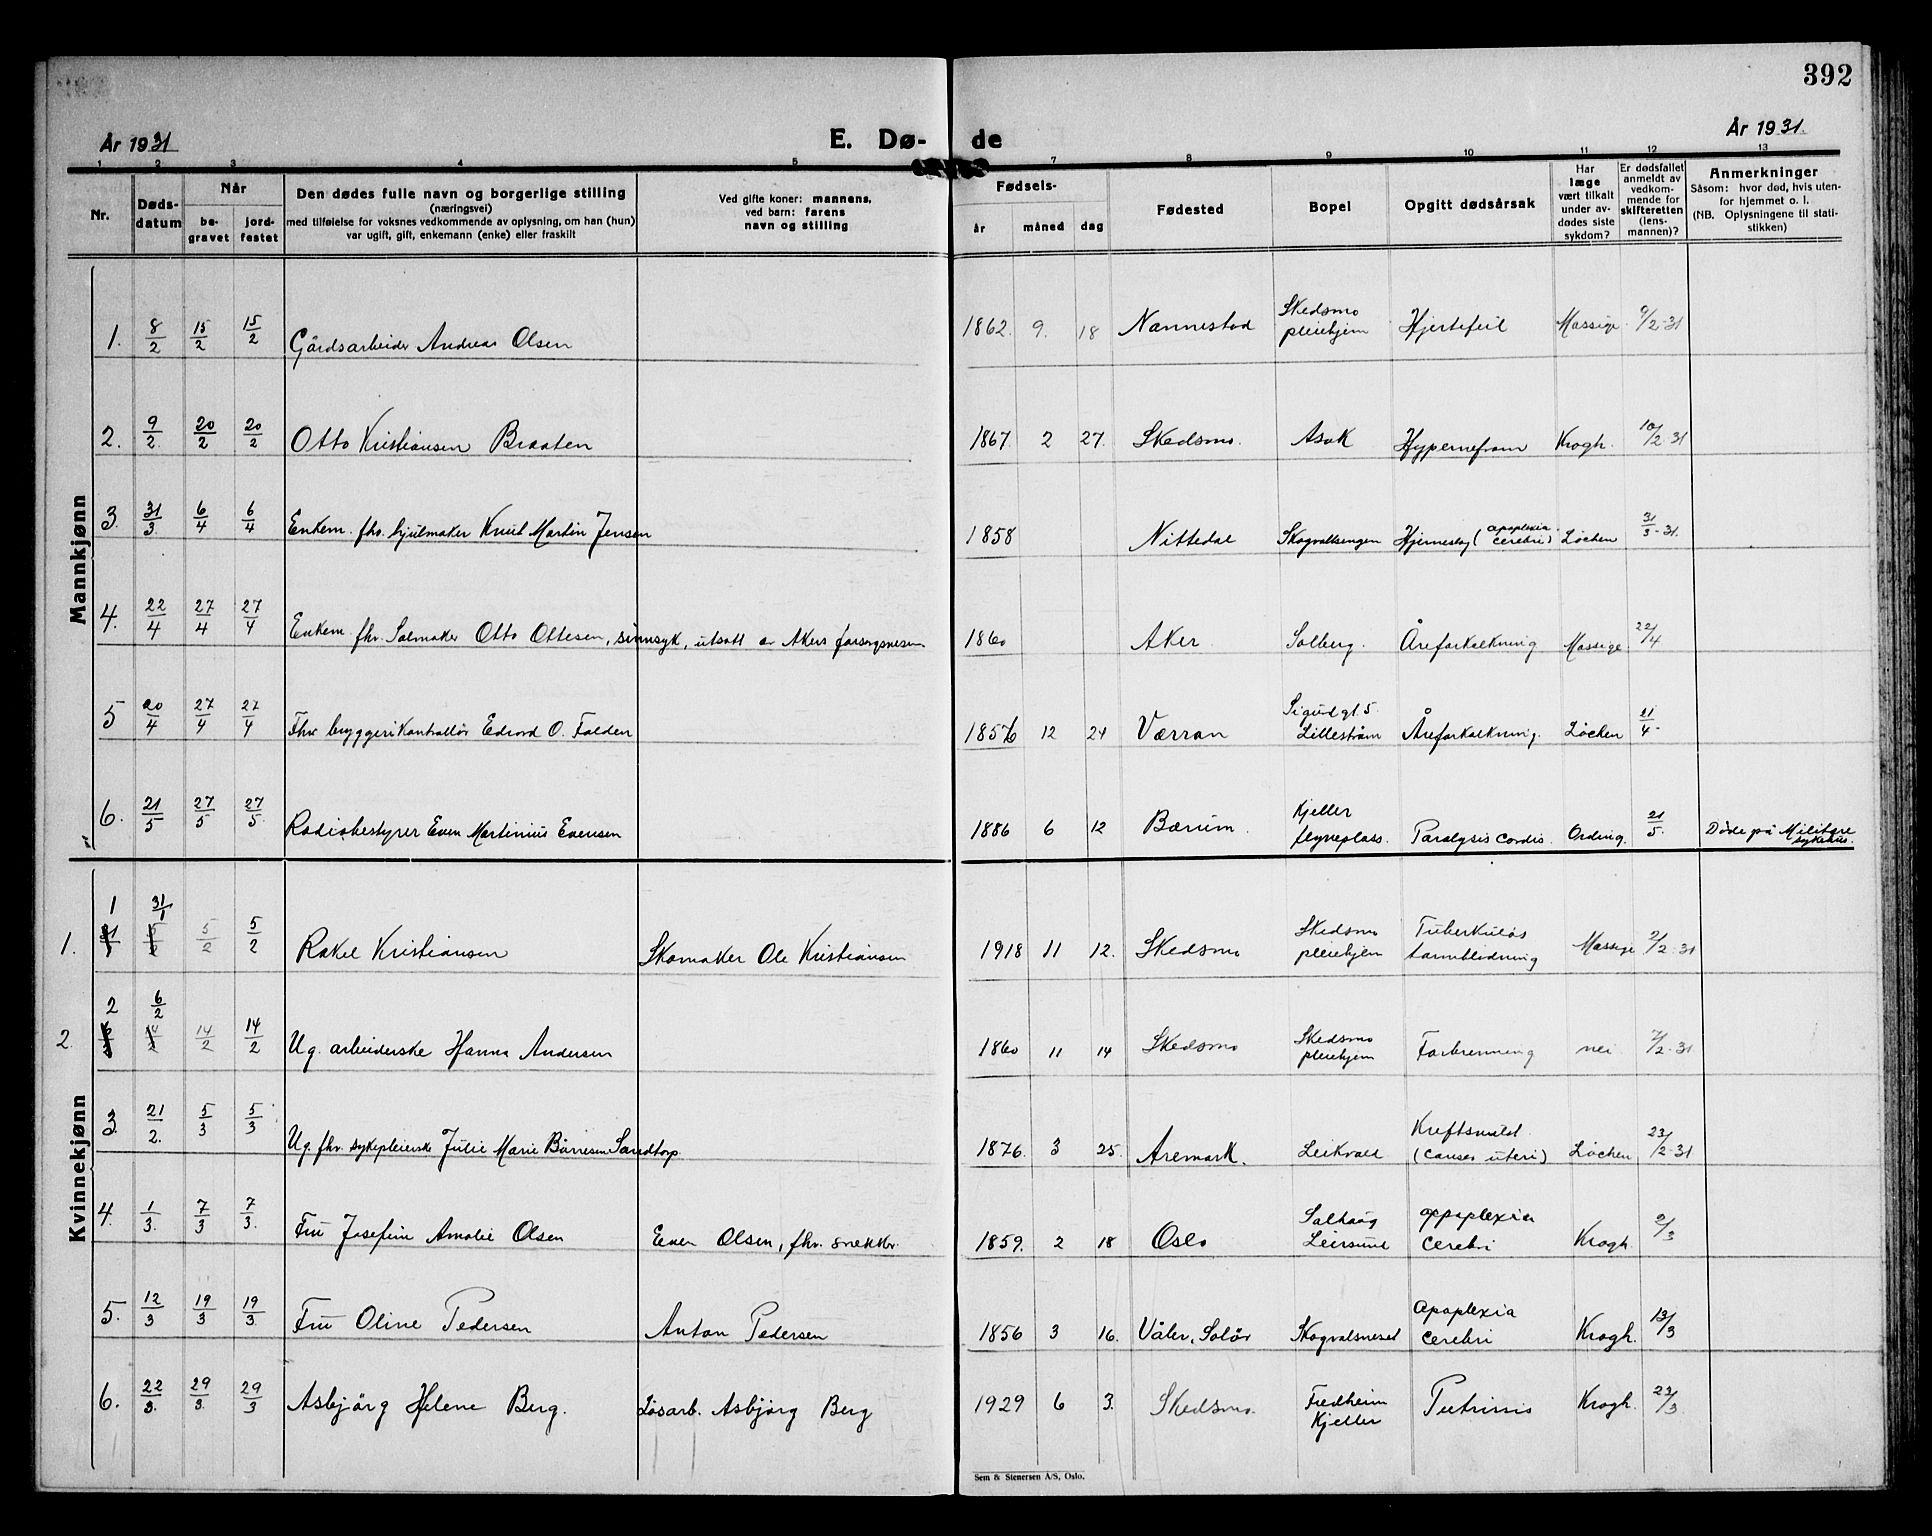 392
År 1931
E. Dø- de
År 1931.
1 2 3 4 5 7 8 9 10 11 12 13
Nr.
Døds-
datum
Når
be-
gravet
jord-
festet
Den dødes fulle navn og borgerlige stilling
(næringsvei)
med tilføielse for voksnes vedkommende av oplysning, om han (hun)
var ugift, gift, enkemann (enke) eller fraskilt
Ved gifte koner: mannens,
ved barn: farens
navn og stilling
Fødsels-
år måned dag
Fødested
Bopel
Opgitt dødsårsak
Har
læge
vært tilkalt
under av-
dødes siste
sykdom?
Er dødsfallet
anmeldt av
vedkom-
mende for
skifteretten
(lens-
mannen)?
Anmerkninger
Såsom: hvor død, hvis uten-
for hjemmet o. l.
(NB. Oplysningene til stati-
stikken)
Mannkjønn
1. 8/2 15/2 15/2 Gårdsarbeider Andreas Olsen 1862. 9. 18 Nannestad Skedsmo pleiehjem Hjertefeil Massige 9/2-31
2. 9/2 20/2 20/2 Otto Kristiansen Braaten 1867. 2 27. Skedsmo. Asak Hypernefrom Krogh. 10/2-31
3. 31/3 6/4 6/4 Enkem. fhv. hjulmaker Knut Martin Jensen 1858 Nittedal Skogvaltsengen Hjerneslag (apoplexia cerebri) Løchen 31/3-31.
4. 22/4 27/4 27/4 Enkem. fhv. Salmaker Otto Ottesen, sinnsyk, utsatt av Akers forsorgsvesen 1860 Aker Solberg. Åreforkalkning Massige 22/4
5 20/4 27/4 27/4 Fhv bryggerikontrollør Edvard O. Folden 1856 12 24 Værran Sigurdgt. 5. Lillestrøm Åreforkalkning. Løchen 21/4-
6. 21/5 27/5 27/5. Radiobestyrer Even Martinius Evensen 1886 6 12 Bærum. Kjeller flyveplass. Paralysis cordis. Ording. 21/5. Døde på Militære sykehus.
Kvinnekjønn
1. 1 31/1 5/2 5/2 Rakel Kristiansen Skomaker Ole Kristiansen 1918 11 12. Skedsmo Skedsmo pleiehjem Tuberkuløs tarmblødning Massige 2/2-31
2. 2 6/2 14/2 14/2 Ug. arbeiderske Hanna Andersen 1860 11 14 Skedsmo Skedsmo pleiehjem Forbrenning nei 7/2-31
3. 21/2. 5/3 5/3 Ug. fhv. sykepleierske Julie Marie Børresen Sandtorp. 1876. 3 25. Aremark. Leikvold Kreftsvulst (cancer uteri) Løchen 23/2-31
4. 1/3. 7/3 7/3. Fru Josefine Amalie Olsen Even Olsen, fhv. snekker. 1859. 2 18 Oslo Solhaug Leirsund appoplexia cerebri Krogh. 2/3
5. 12/3 19/3 19/3. Fru Oline Pedersen Anton Pedersen 1856 3 16. Våler, Solør Skogvalsneset apoplexia cerebri Krogh. 13/3
6. 22/3. 29/3. 29/3 Asbjörg Helene Berg. Løsarb. Asbjörg Berg 1929 6 3. Skedsmo. Fredheim Kjeller Krogh. 23/3.
Sem & Stenersen A/S, Oslo.